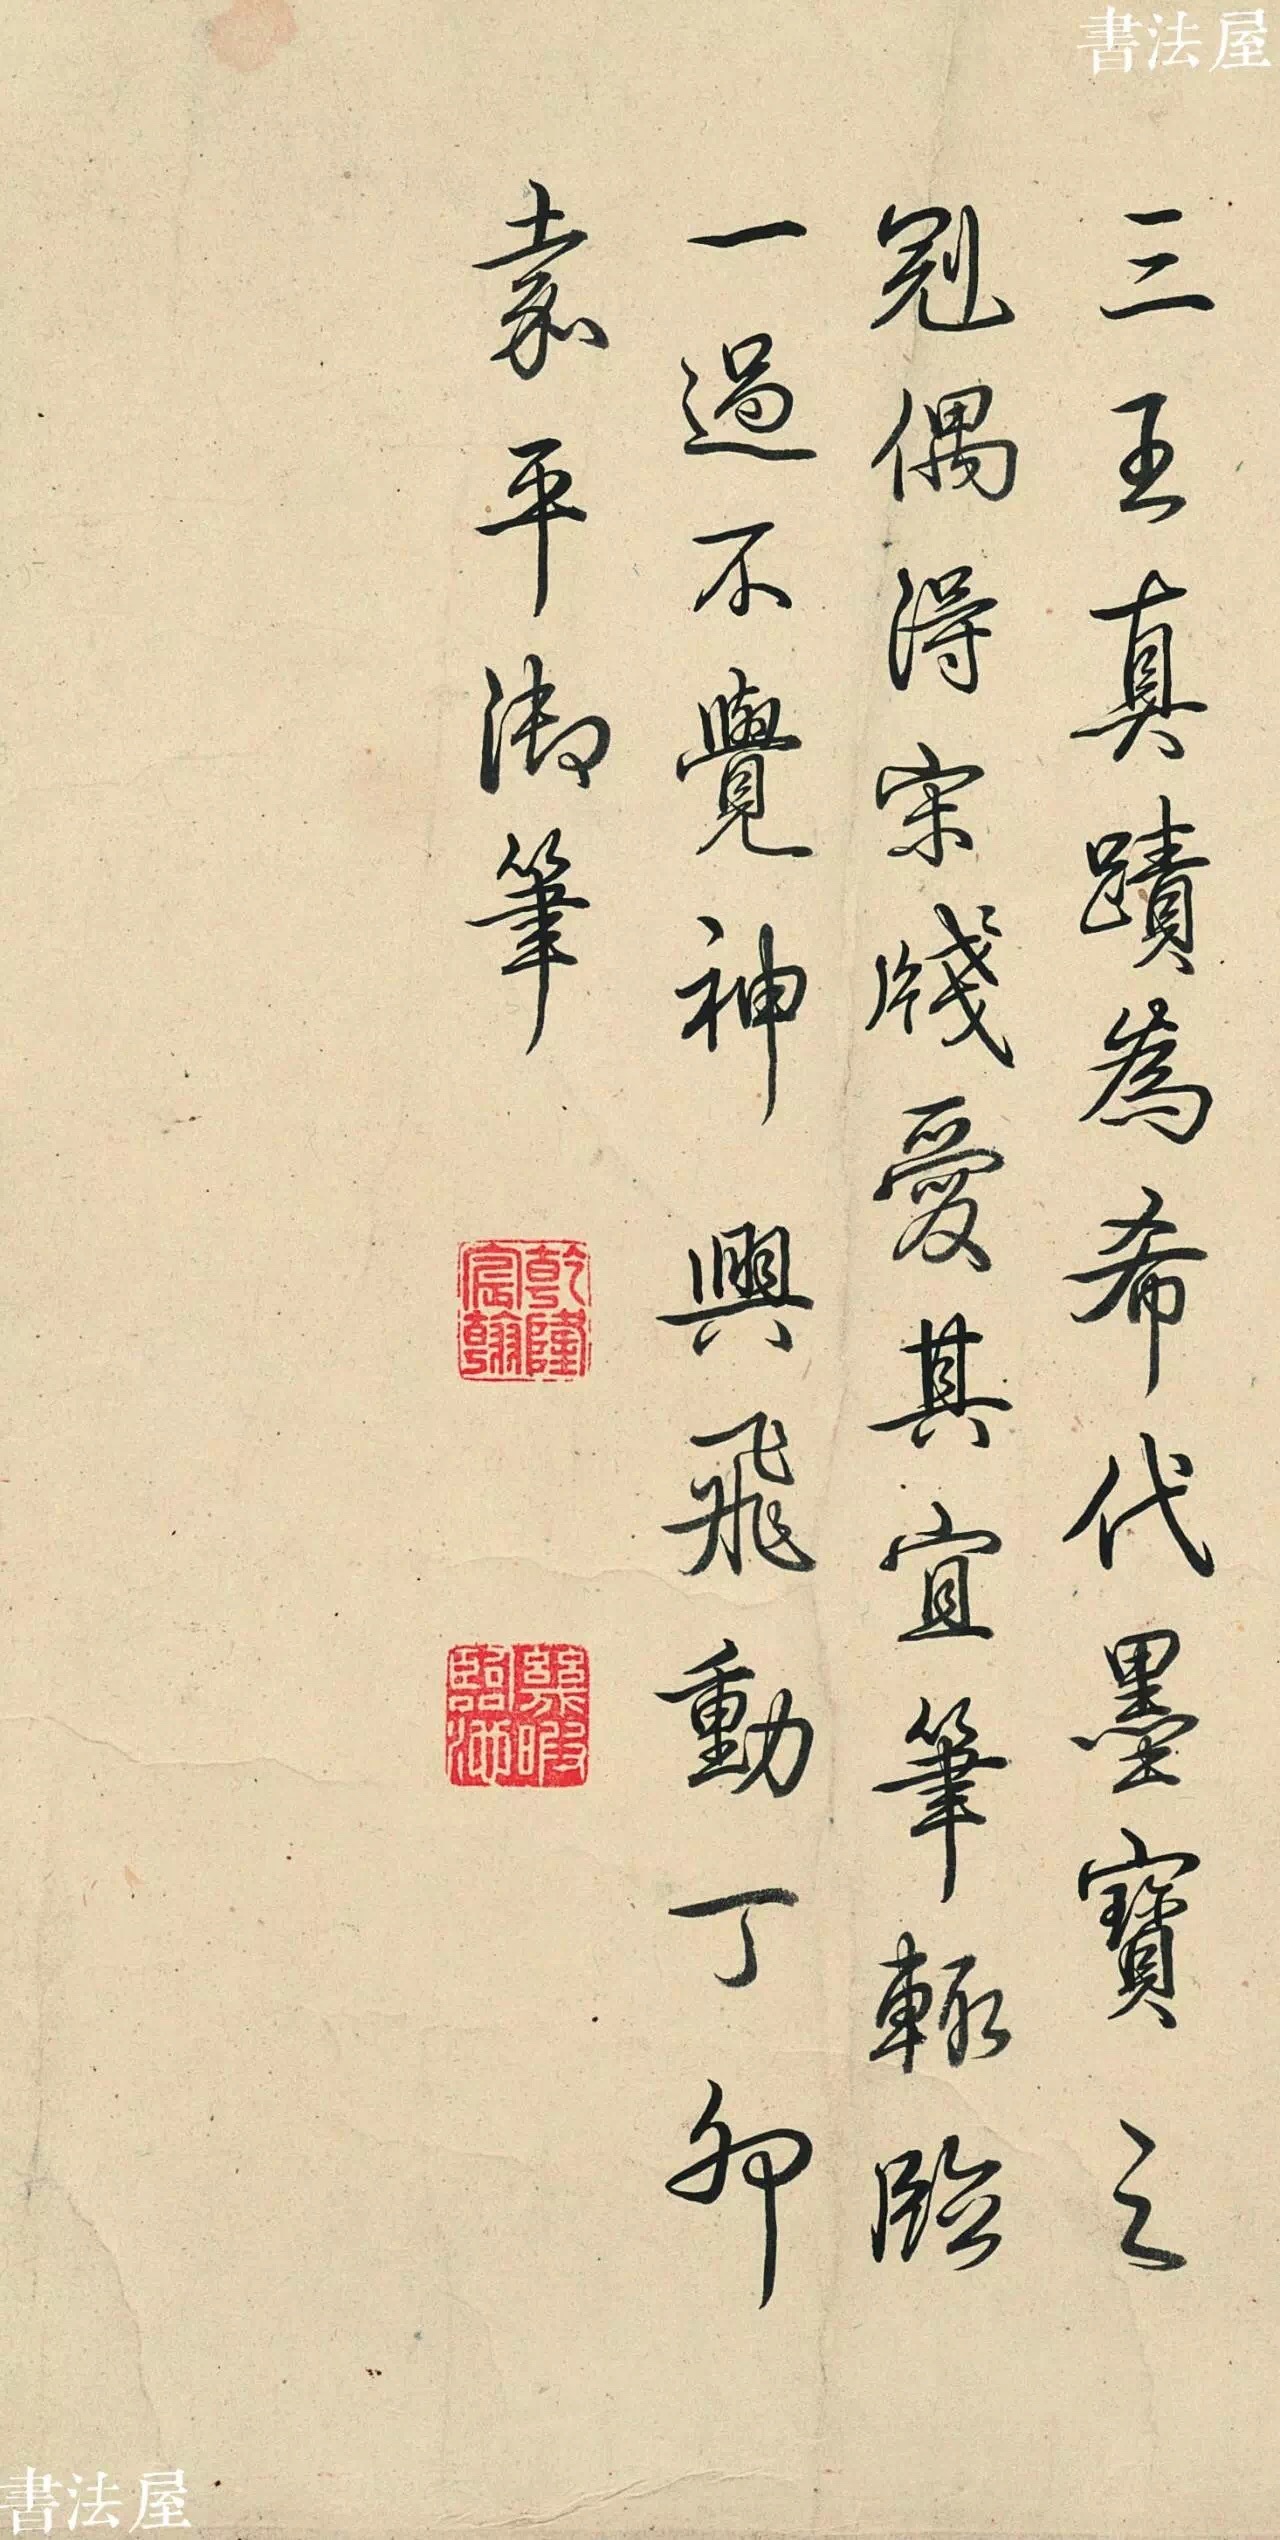 書法屋
三王真蹟為希代墨寶之
冠偶得宋牋愛其宜筆輒臨
一過不覺神興飛動丁卯
嘉平御筆
乾隆宸翰
幾暇臨池
書法屋